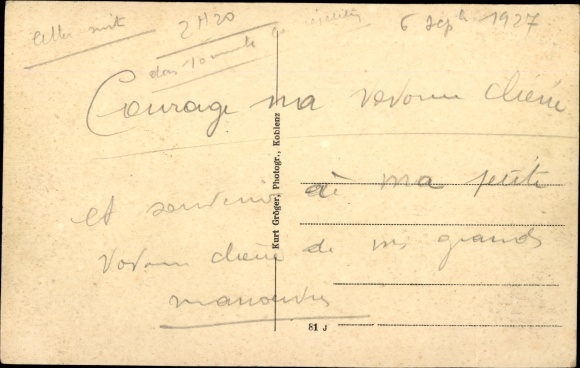 cette nuit
2H20
dans 10 minutes
6 Sept 1927
Courage ma chérie
et souvenir à ma petite
chérie de mes grandes
manoeuvres
Kurt Gröger, Photogr., Koblenz
81 J